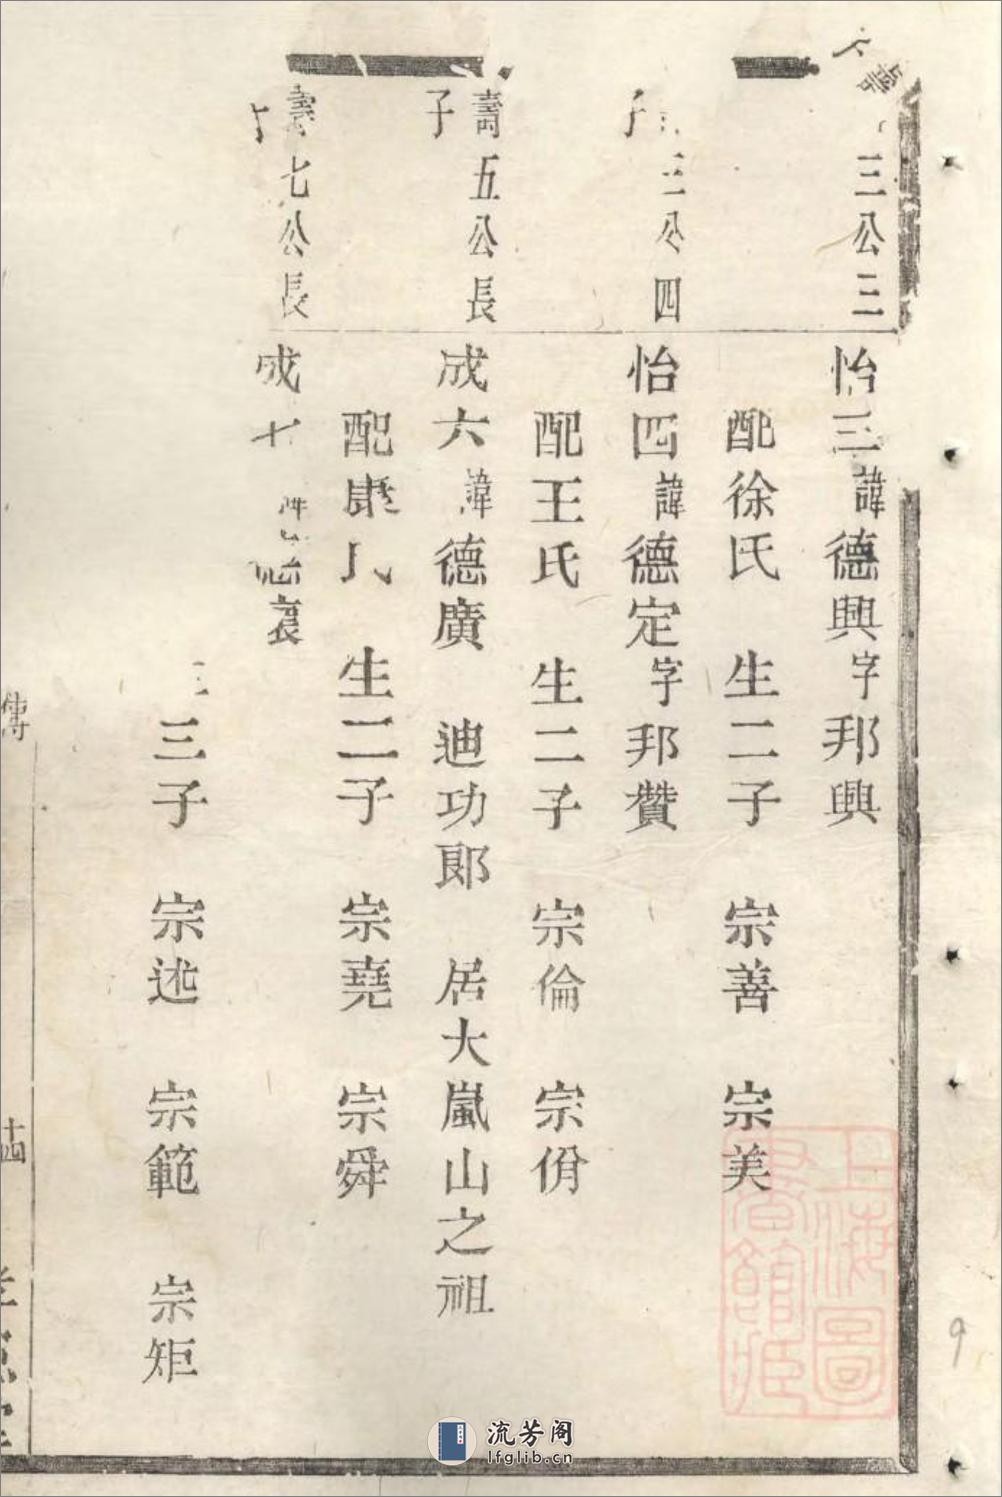 三公三
怡三諱德興字邦興
配徐氏 生二子 宗善 宗美
三公四子
怡四諱德定字邦贊
配王氏 生二子 宗倫 宗佾
壽五公長子
成六諱德廣 迪功郎 居大嵐山之祖
配 氏 生二子 宗堯 宗舜
壽七公長
成七
三子 宗述 宗範 宗矩
傳
十四
上海圖書館藏
9
流芳阁
lfglib.cn